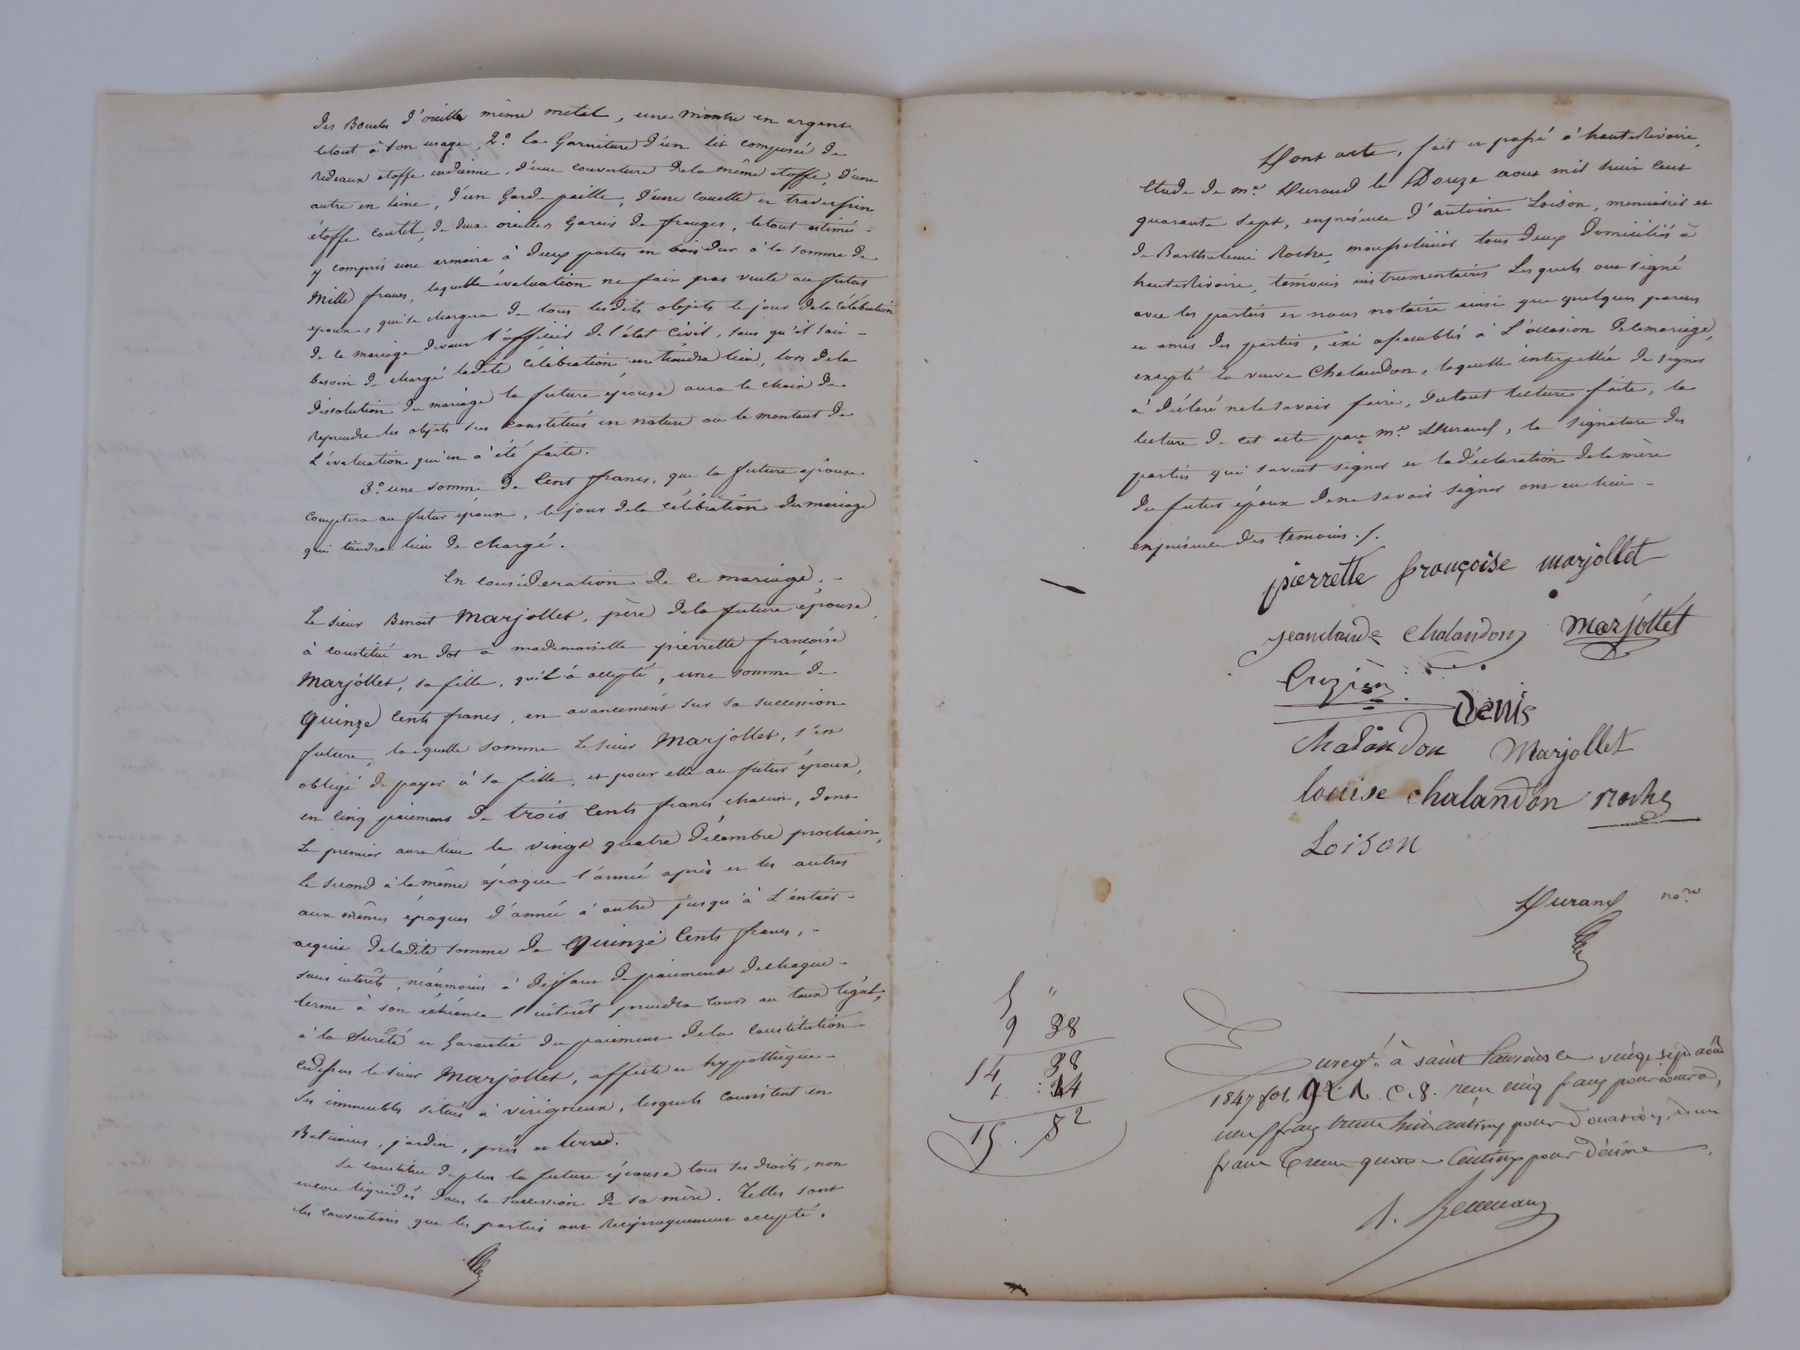 des Boucles d'oreilles même métal, une montre en argent
letout à son usage, 2.° la Garniture d'un lit composée de
Rideaux étoffe indienne, d'une couverture dela même étoffe, d'une
autre en laine, d'un Garde paille, d'une couette et traversin
étoffe coutil, de deux oreillers garnis de franges, letout estimé -
y compris une armoire à deux portes en bois dur à la somme de
Mille francs, laquelle évaluation ne fait pas vente au futur
époux, qui se chargera de tous lesdits objets le jour dela célébration
de ce mariage devant l'officier de l'état civil, sans qu'il soit -
besoin de chargé ladite célébration en tiendra lieu, lors dela
dissolution du mariage la future épouse aura le choix de
reprendre les objets sus constitués en nature ou le montant de
L'évaluation qui en a été faite.
3.° une somme de Cent francs, que la future épouse
comptera au futur époux, le jour dela célébration du mariage
qui tiendra lieu de chargé.
En considération de ce mariage, -
Le sieur Benoit Marjollet, père dela future épouse,
à constitué en dot à mademoiselle pierrette françoise
Marjollet, sa fille, qui l'à accepté, une somme de
Quinze Cents francs, en avancement sur sa succession
future, laquelle somme Le sieur Marjollet, s'est
obligé de payer à sa fille, et pour elle au futur époux,
en cinq paiemens de trois Cents francs chacun, dont
Le premier aura lieu le vingt quatre Décembre prochain,
Le second à la même époque l'année après et les autres
aux mêmes époques d'année à autre jusqu'à L'entier -
acquit deladite somme de Quinze Cents francs, -
sans intérêts, néanmoins à défaut de paiement dechaque -
terme à son échéance l'intérêt prendra cours au taux légal,
à la Sureté et Garantie du paiement dela constitution
cidessus le sieur Marjollet, affecte et hypothèque -
ses immeubles situés à virigneux, lesquels consistent en
Batimens, jardin, prés et terres.
Se constitue de plus la future épouse tous ses droits, non
encore liquidés dans la succession de sa mère. Telles sont
les conventions que les parties ont réciproquement accepté.
Dont acte, fait et passé à hauterivoire,
Etude de m.e Durand le Douze aout mil huit cent
quarante sept, enprésence d'antoine Loison, menuisier et
de Barthelemi Roche, mousselinier tous deux domiciliés à
hauterivoire, témoins instrumentaires Lesquels ont signé
avec les parties et nous notaire ainsi que quelques parens
et amis des parties, ici assemblés à L'occasion delamariage,
excepté la veuve Chalandon, laquelle interpellée de signer
à déclaré nele savoir faire, dutout lecture faite, la
lecture de cet acte par m.e Durand, la signature des
parties qui savent signer et la déclaration dela mère
du futur époux dene savoir signer ont eu lieu -
enprésence des temoins ./.
pierrette françoise marjollet
jeanclaude chalandon Marjollet
Denis
chalandon Marjollet
louise chalandon roche
Loison
Durand no.re
5 "
9 38
14 38
1 44
15. 82
Enreg.t à saint Laurent le vingt sept août
1847 fol c. 8. reçu cinq francs pour contrat,
neuf francs trente huit centimes pour donation, et un
franc quarante quatre centimes pour décime